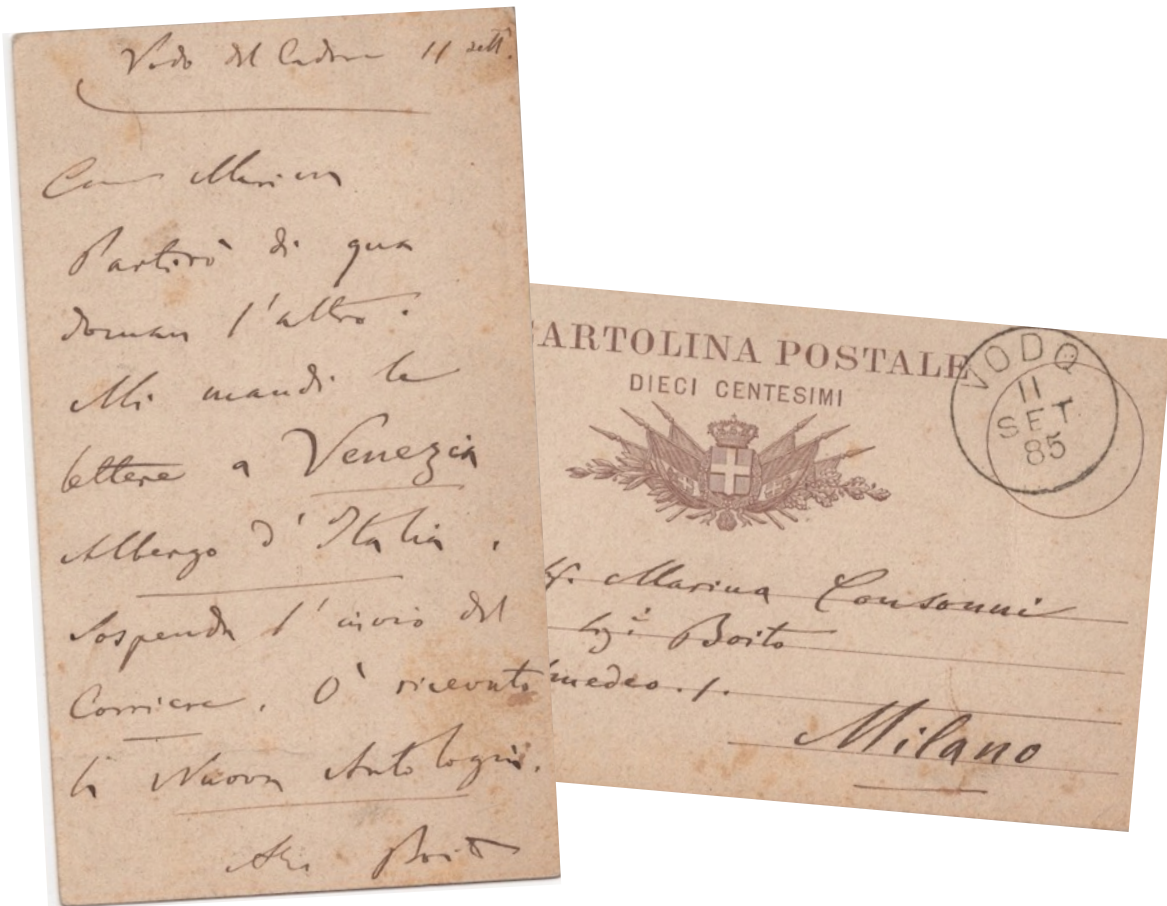 Vodo del Cadore 11 sett.
Cara Marina
Partirò di qua
doman l'altro.
Mi mandi le
lettere a Venezia
Albergo d'Italia.
Sospenda l'invio del
Corriere. O' ricevuto
la Nuova Antologia.
Boito
CARTOLINA POSTALE
DIECI CENTESIMI
VODO
11
SET
85
Marina Consonni
Boito
medeo. 1.
Milano